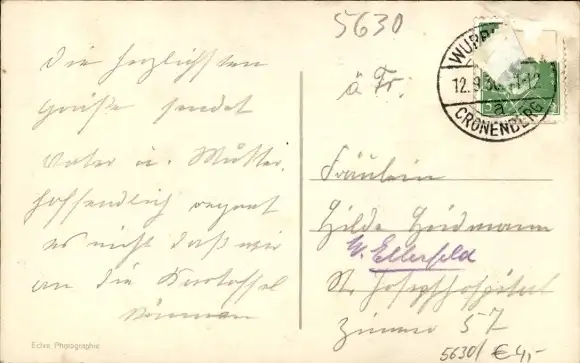 5630
Die herzlichsten
Grüße sendet
Vater u. Mutter.
Hoffendlich regnet
es nicht daß wir
an die Kartoffel
können
Echte Photographie
ä Fr.
WUPP
12.9.3
a
CRONENBERG
Fräulein
Hilde Heidmann
W. Elberfeld
St. Josephhospital
Zimmer 57
5630/ € 4,-